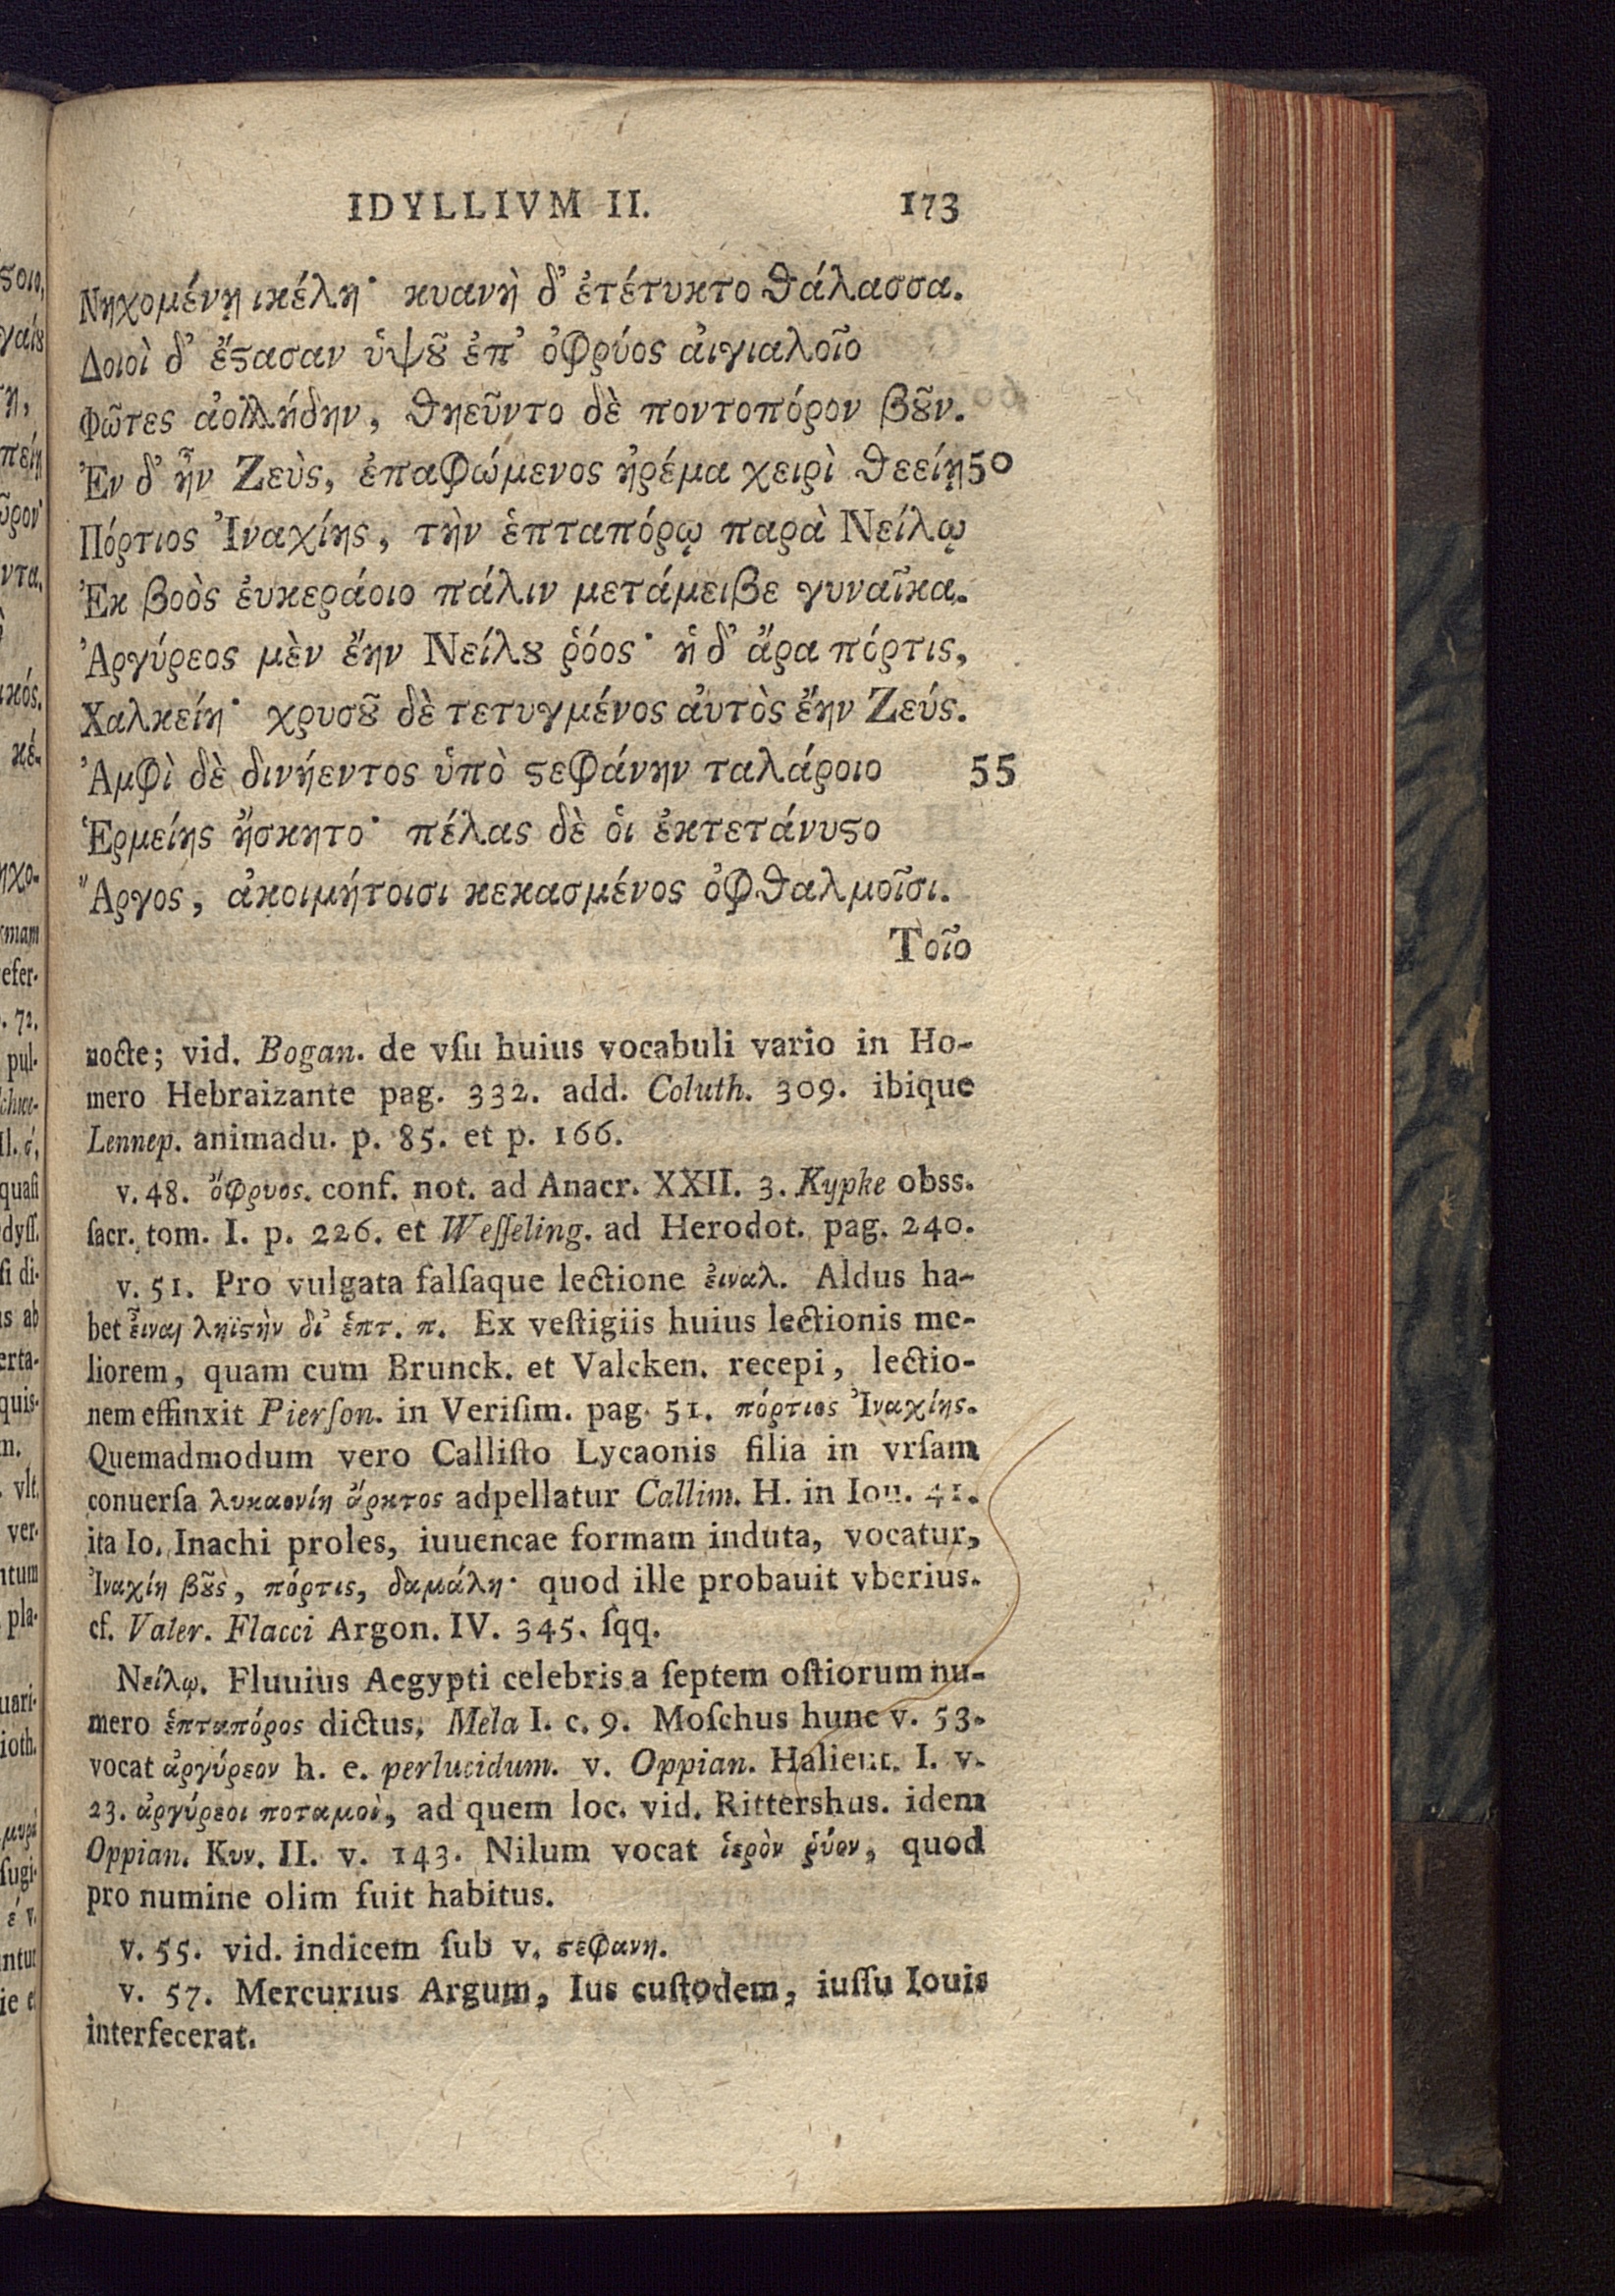 IDYLLIVM II. 173
Νηχομένῃ ικέλη· κυανὴ δ' ἐτέτυκτο ϑάλασσα.
Δοιοὶ δ' ἔϛασαν ὑψȣ͂ ἐπ' ὀφρύος ἀιγιαλοῖο
Φῶτες ἀολλήδην, ϑηεῦντο δὲ ποντοπόρον βȣ͂ν.
Ἐν δ' ἦν Ζεὺς, ἐπαφώμενος ἠρέμα χειρὶ ϑεείῃ 50
Πόρτιος Ἰναχίης, τὴν ἑπταπόρῳ παρὰ Νείλῳ
Ἐκ βοὸς ἐυκεράοιο πάλιν μετάμειβε γυναῖκα.
Ἀργύρεος μὲν ἔην Νείλȣ ῥόος· ἡ δ' ἄρα πόρτις,
Χαλκείη· χρυσȣ͂ δὲ τετυγμένος ἀυτὸς ἔην Ζεύς.
Ἀμφὶ δὲ δινήεντος ὑπὸ ϛεφάνην ταλάροιο 55
Ἑρμείης ἤσκητο· πέλας δὲ ὁι ἐκτετάνυϛο
Ἄργος, ἀκοιμήτοισι κεκασμένος ὀφϑαλμοῖσι.
Τοῖο
nocte; vid. Bogan. de vſu huius vocabuli vario in Ho-
mero Hebraizante pag. 332. add. Coluth. 309. ibique
Lennep. animadu. p. 85. et p. 166.
v. 48. ὄφρυος. conf. not. ad Anacr. XXII. 3. Kypke obss.
ſacr. tom. I. p. 226. et Weſſeling. ad Herodot. pag. 240.
v. 51. Pro vulgata falſaque lectione ἐιναλ. Aldus ha-
bet ἶιναι ληϊϛὴν δι' ἑπτ. π. Ex veſtigiis huius lectionis me-
liorem, quam cum Brunck. et Valcken. recepi, lectio-
nem effinxit Pierſon. in Veriſim. pag. 51. πόρτιος Ἰναχίης.
Quemadmodum vero Calliſto Lycaonis filia in vrſam
conuerſa λυκαονίη ἄρκτος adpellatur Callim. H. in Iou. 41.
ita Io, Inachi proles, iuuencae formam induta, vocatur,
Ἰναχίη βȣ͂ς, πόρτις, δαμάλη· quod ille probauit vberius.
cf. Valer. Flacci Argon. IV. 345. ſqq.
Νείλῳ. Fluuius Aegypti celebris a ſeptem oſtiorum nu-
mero ἑπταπόρος dictus, Mela I. c. 9. Moſchus hunc v. 53.
vocat ἀργύρεον h. e. perlucidum. v. Oppian. Halieut. I. v.
23. ἀργύρεοι ποταμοὶ, ad quem loc. vid. Rittershus. idem
Oppian. Κυν. II. v. 143. Nilum vocat ἱερὸν ῥύον, quod
pro numine olim fuit habitus.
v. 55. vid. indicem ſub v. ϛεφανη.
v. 57. Mercurius Argum, Ius cuſtodem, iuſſu Iouis
interfecerat.